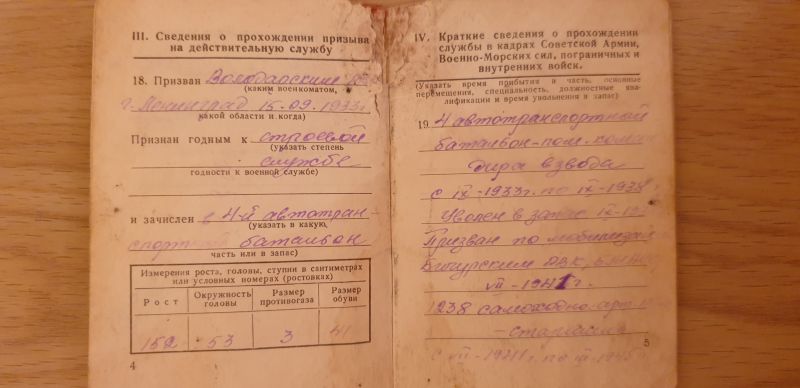 III. Сведения о прохождении призыва
на действительную службу
18. Призван Володарским
(каким военкоматом,
г. Ленинград 15.09.1933г.
какой области и когда)
Признан годным к строевой
(указать степень
службе
годности к военной службе)
и зачислен в 4-й автотран-
(указать в какую,
спортный батальон
часть или в запас)
Измерения роста, головы, ступни в сантиметрах
или условных номерах (ростовках)
Рост
Окружность
головы
Размер
противогаза
Размер
обуви
152
53
3
41
4
IV. Краткие сведения о прохождении
службы в кадрах Советской Армии,
Военно-Морских сил, пограничных и
внутренних войск.
(Указать время прибытия в часть, основные
перемещения, специальность, должностные ква-
лификации и время увольнения в запас)
19. 4 автотранспортный
батальон-пом. коман
дира взвода
с IX-1933г. по IX-1938
Уволен в запас IX-19
Призван по
VII-1941г.
1238 самоходно-арт.
- старшина
с VII-1941г. по
5